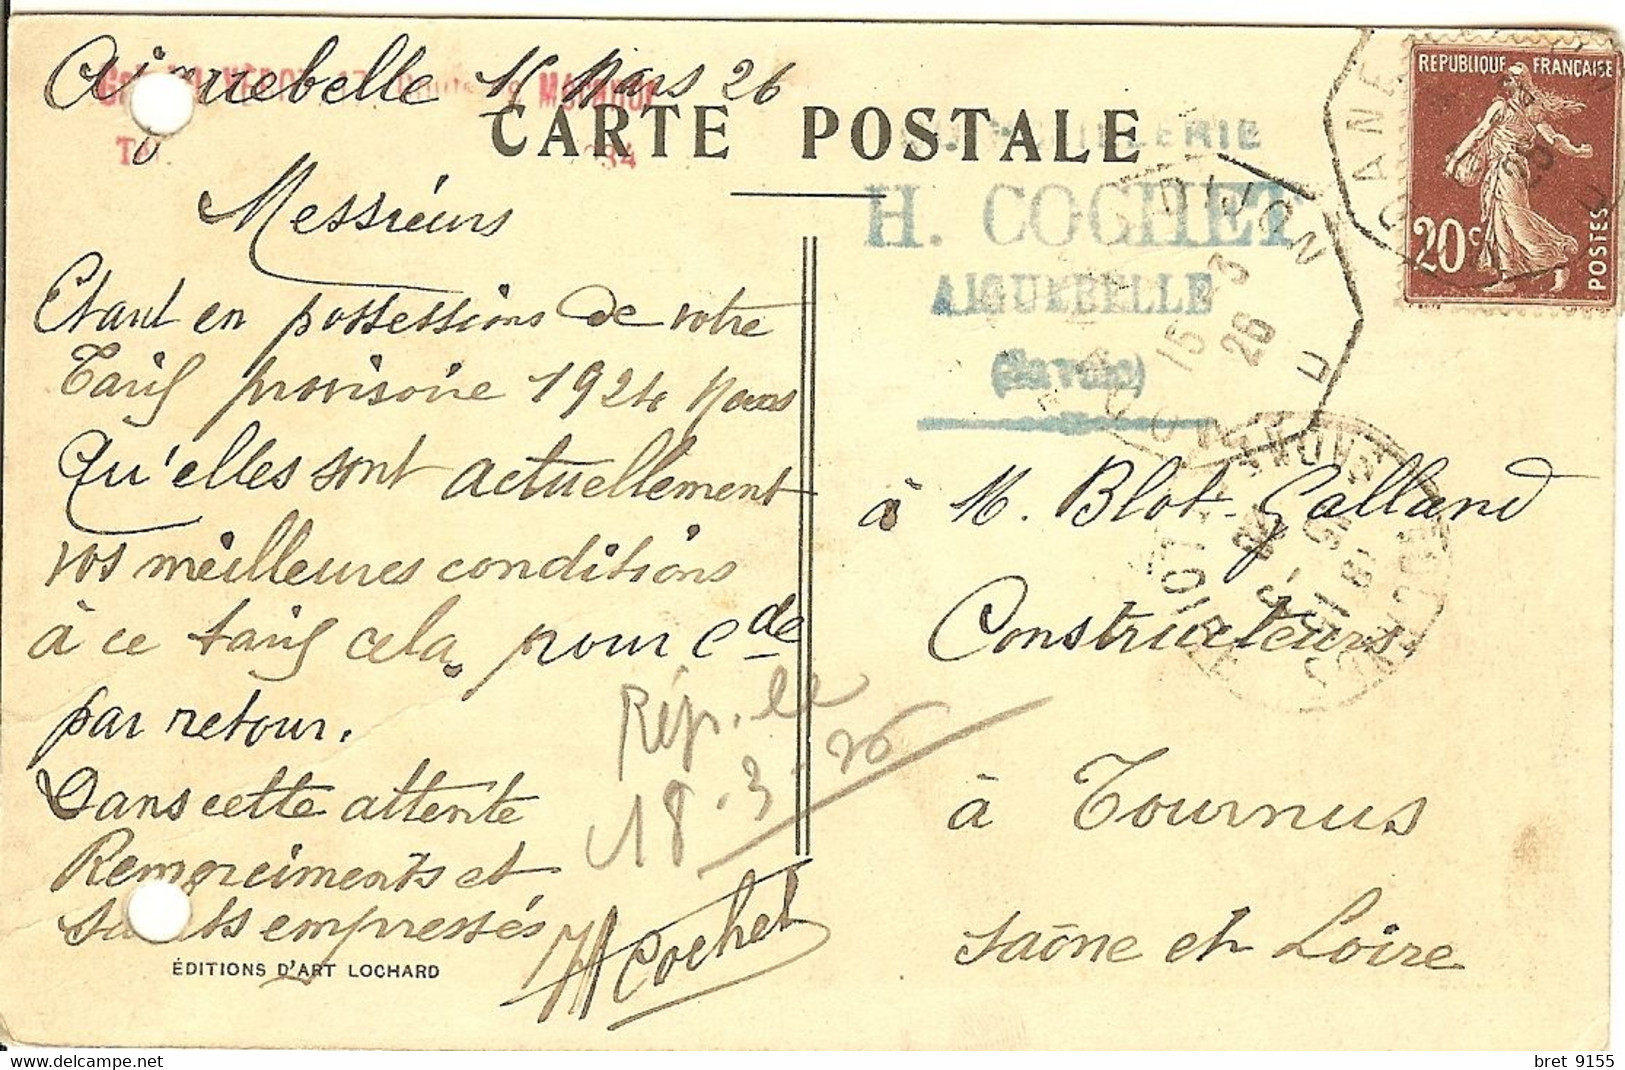 Aiguebelle 15 Mars 26
CARTE POSTALE
Messieurs
Etant en possessions de votre
Tarif provisoire 1924
Qu'elles sont actuellement
vos meilleures conditions
à ce tarif cela, pour cde
par retour.
Dans cette attente
Remerciments et
saluts empressés
H Cochet
ÉDITIONS D'ART LOCHARD
Rép. le
18.3.26
H. COCHET
AIGUEBELLE
(Savoie)
DIJON
15 3
26
RÉPUBLIQUE FRANÇAISE
20c
POSTES
à M. Blot-Galland
Constructeurs
à Tournus
saône et Loire
bret 9155